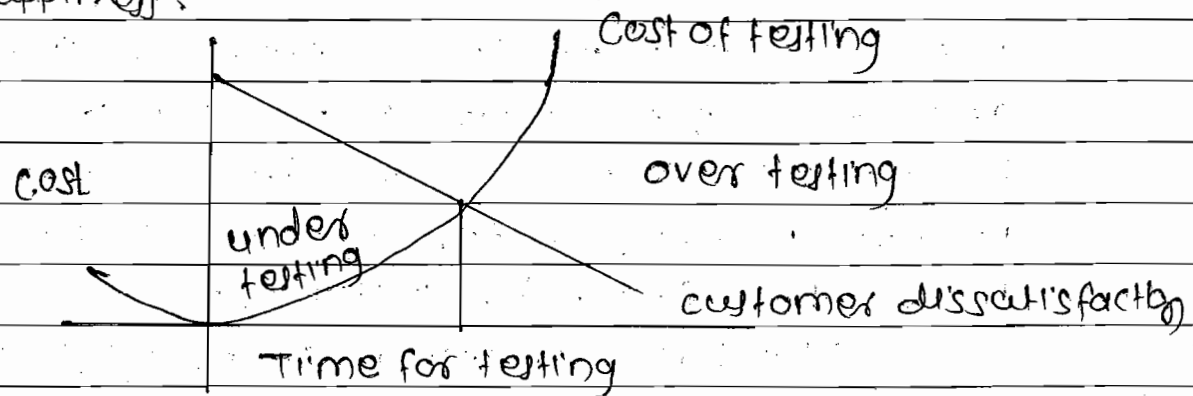 Cost of testing
cost
over testing
under
testing
customer dissatisfaction
Time for testing